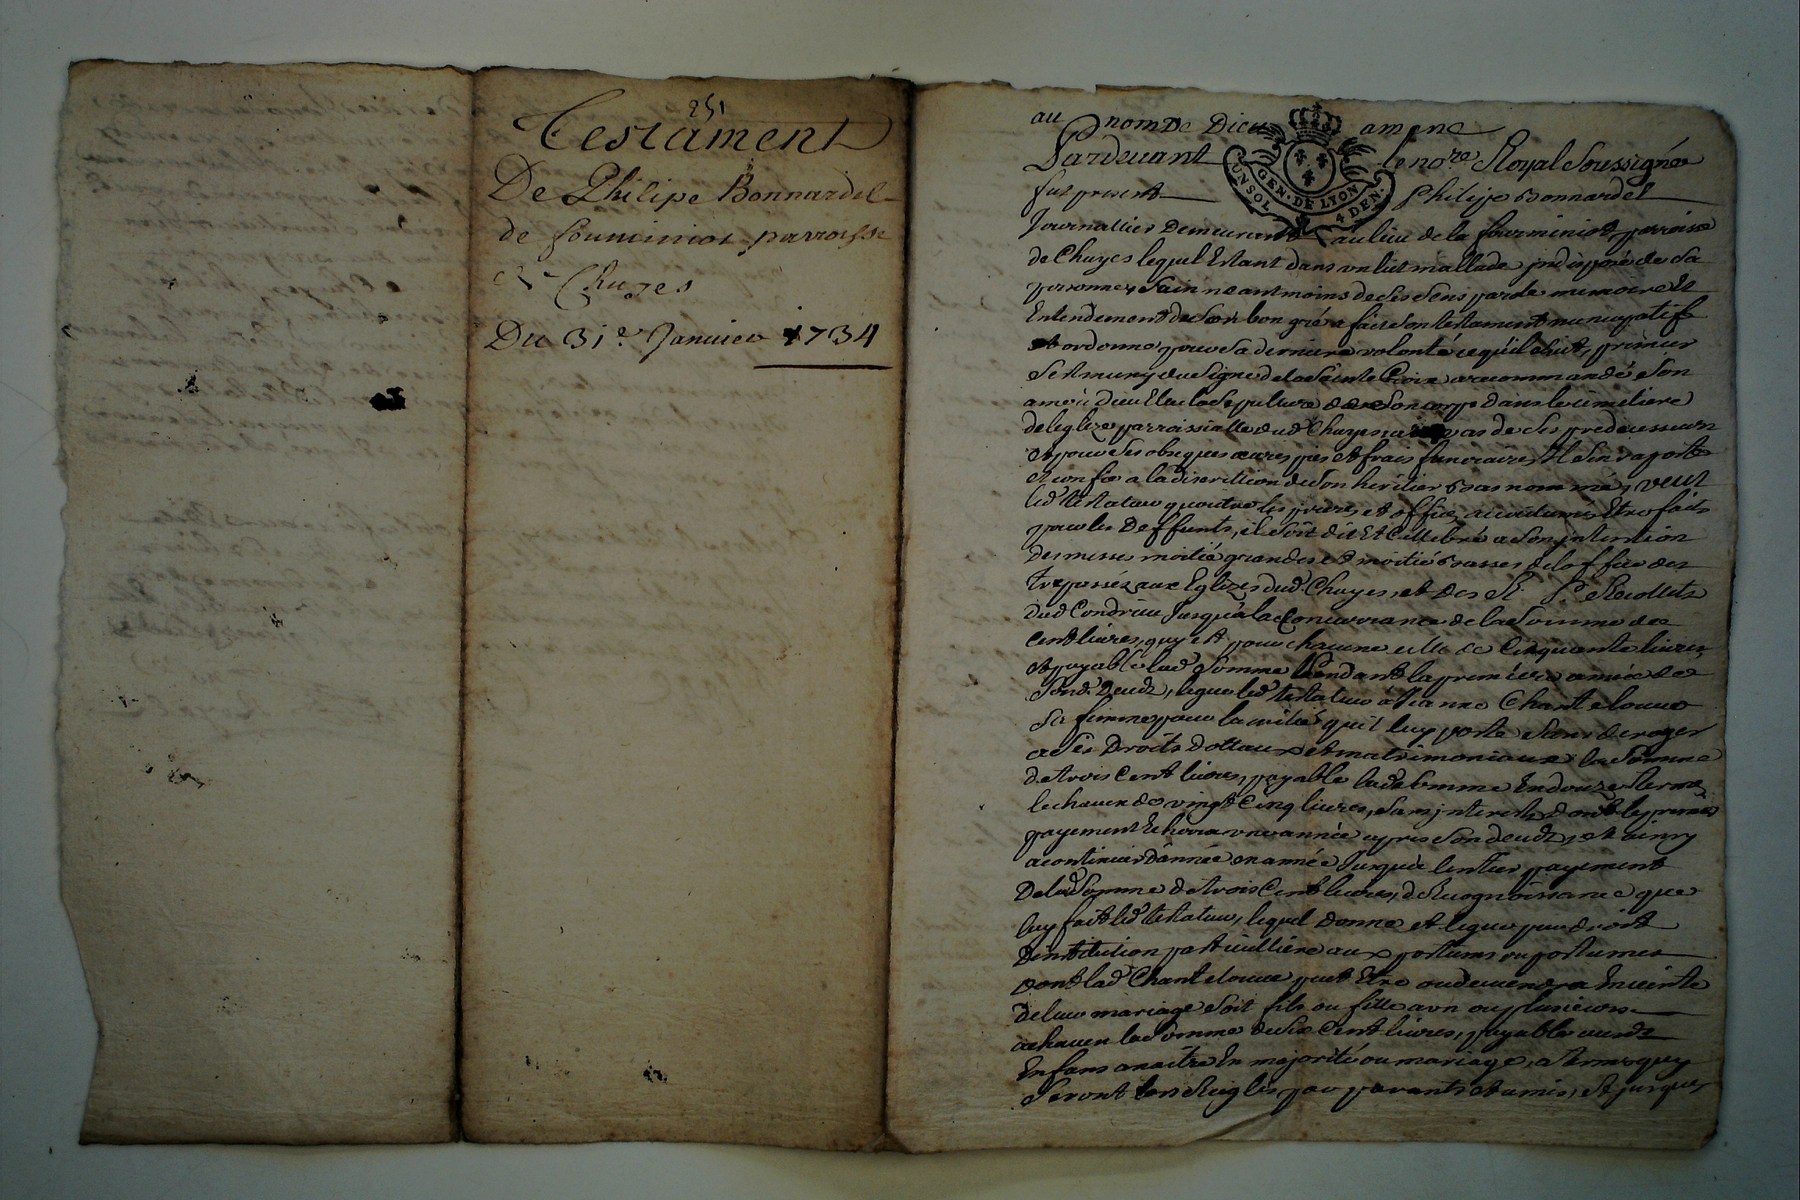 251
Testament
De Philipe Bonnardel
de fourminiot parroisse
de Chuyes
Du 31e Janvier 1734
au nom De Dieu amene
Pardevant le nore Royal Soussignée
fut present Philipe Bonnardel
Journallier Demeurant au lieu de la fourminiot parroisse
de Chuyes lequel Estant dans un lict mallade indisposé de sa
personne, Sain neantmoins de ses Sens parole memoire Et
Entendement de son bon gré a fait son testament nuncupatif
et ordonné pour sa derniere volonté ce qu'il suit, premier
Sest muny du Signe de la Sainte Croix a recommandé Son
ame a dieu Elu la Sepulture de son corps dans le cimetiere
de leglize parroissialle dud Chuyes vas de ses predecesseurs
et pour ses obseques œuvres pies et frais funeraires Il s'en raporte
et confie a la discrettion de son heritier bas nommé, veut
led testateur quoutre les prieres et offices accoutumés Etre faits
pour les Deffunts, il soit dit Et Cellebré a son intention
des messes moitié grandes et moitié basses de loffice des
trepassés aux Eglizes dud Chuyes et des R. Ps Recollets
dud Condrieu Jusqu'a la Concurrance de la Somme de
Cent livres, quy est pour chacune celle de Cinquante livres
et payable lad Somme pendant la premiere année de
Sond. deceds, legue led testateur a Jeanne Chantelouve
sa femme pour lamitié qu'il luy porte Sans deroger
a ses Droits dottaux et matrimoniaux la Somme
de trois cent livres, payable lad Somme En douze termes
le chacun de vingt Cinq livres, sans interests dont le premier
payement Echerra une année apres son deceds, et ainsy
a continuer d'année en année Jusqu'a lentier payement
De lad Somme de trois Cent livres, de Recognoissance que
luy fait led testateur, lequel donne et legue par droit
Dinstitution particulliere aux postumes ou postumes
dont lad Chantelouve peut Etre ou deviendra Enceinte
de leur mariage soit fils ou fille un ou plusieurs
a chacun la Somme de Six Cent livres, payable auxd
Enfans a naitre En majorité ou mariage, a termes quy
Seront lors Reglés par parants et amis, Et jusques